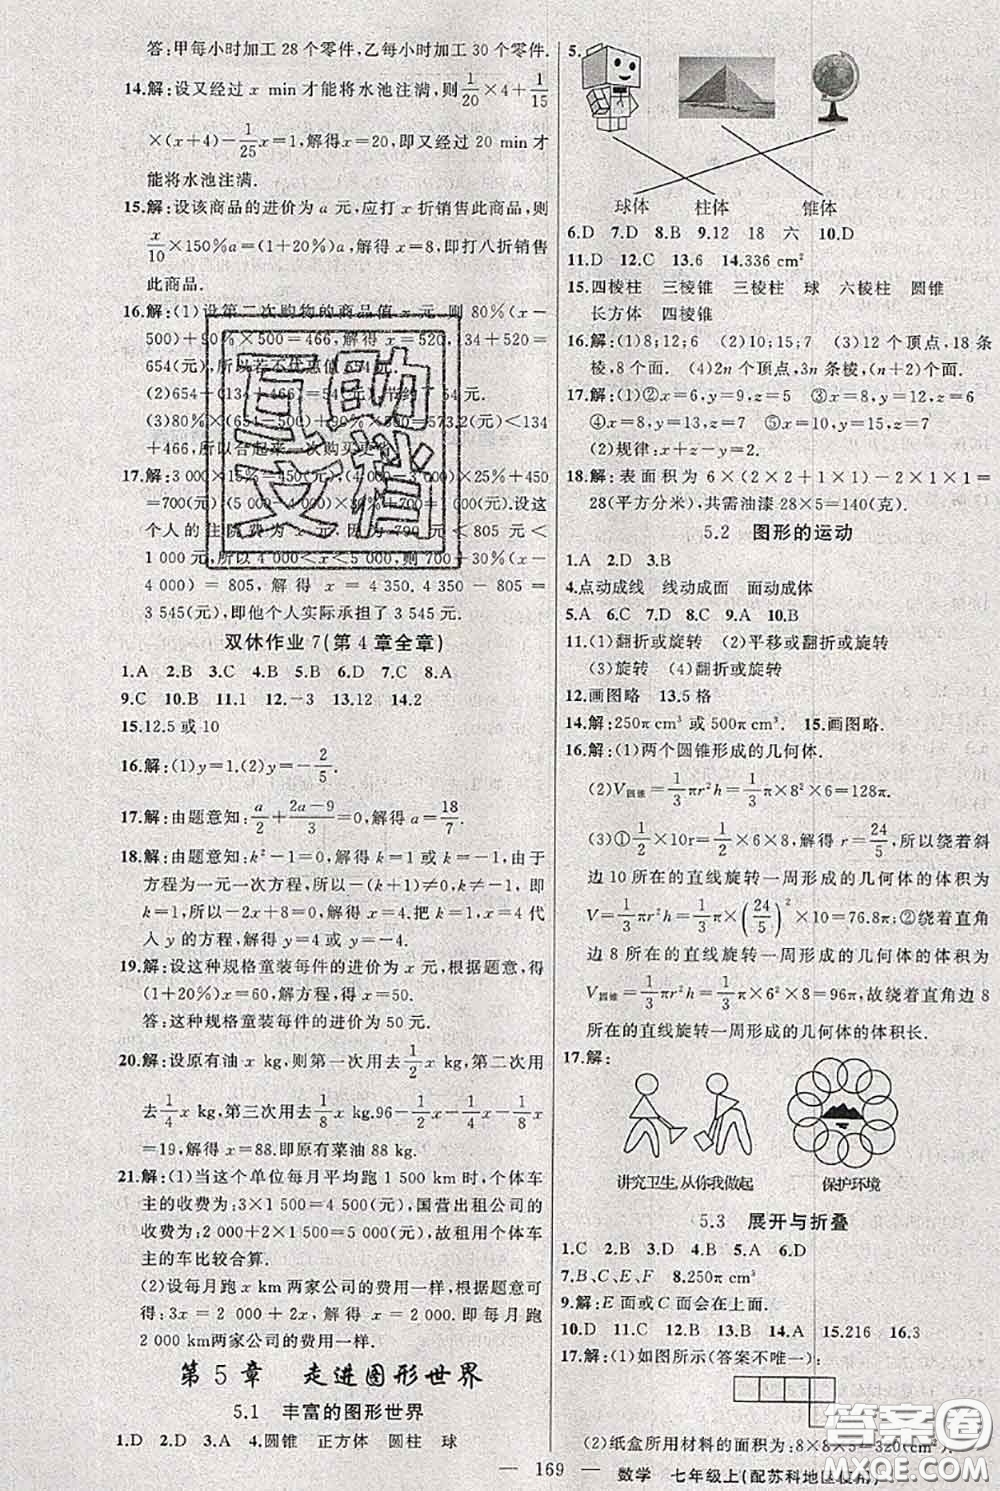 答:甲每小时加工 28 个零件,乙每小时加工 30 个零件.
14.解:设又经过 x min 才能将水池注满,则 1/20 ×4+ 1/15
×(x+4)− 1/25 x=1,解得 x=20,即又经过 20 min 才
能将水池注满.
15.解:设该商品的进价为 a 元,应打 x 折销售此商品,则
x/10 ×150%a=(1+20%)a,解得 x=8,即打八折销售
此商品.
16.解:(1)设第二次购物的商品值 x 元,则 80%(x−
500)+90%×500=466,解得 x=520,134+520=
654(元),所以若不优惠值 654 元.
(2)654−(134+466)=54(元).
(3)80%×(654−500)+90%×500=573.2(元)<134
+466,所以合起来一次购买更
17.解:3 000×15%+(4 000−3 000)×25%+450
=700(元)(5 000−4 000)×30%+ =
(元).设这
个人的住院费为 x 元.因为 700<805<
,所以 4 000<x<5 000,则 700+30%(x−
4 000)=805,解得 x=4 350.4 350−805=
3 545(元),即他个人实际承担了 3 545 元.
双休作业 7(第 4 章全章)
1.A 2.B 3.C 4.B 5.B 6.D 7.C 8.A
9.C 10.B 11.1 12.−3 13.12 14.2
15.12.5 或 10
16.解:(1)y=1.(2)y=− 2/5.
17.解:由题意知: a/2 + (2a−9)/3 =0,解得 a= 18/7.
18.解:由题意知:k²−1=0,解得 k=1 或 k=−1,由于
方程为一元一次方程,所以−(k+1)≠0,k≠−1,即
k=1,所以−2x+8=0,解得 x=4.把 k=1,x=4 代
入 y 的方程,解得 y=4 或 y=−4.
19.解:设这种规格童装每件的进价为 x 元,根据题意,得
(1+20%)x=60,解方程,得 x=50.
答:这种规格童装每件的进价为 50 元.
20.解:设原有油 x kg,则第一次用去 1/2 x kg,第二次用
去 1/4 x kg,第三次用去 1/8 x kg.96− 1/2 x− 1/4 x− 1/8 x
=19,解得 x=88.即原有菜油 88 kg.
21.解:(1)当这个单位每月平均跑 1 500 km 时,个体车
主的收费为:3×1 500=4 500(元),国营出租公司的
收费为:2 000+2×1 500=5 000(元),故租用个体车
主的车比较合算.
(2)设每月跑 x km两家公司的费用一样,根据题意可
得:3x=2 000+2x,解得 x=2 000.即每月跑
2 000 km两家公司的费用一样.
第 5 章 走进图形世界
5.1 丰富的图形世界
1.D 2.D 3.A 4.圆锥 正方体 圆柱 球
5.
球体 柱体 锥体
6.D 7.D 8.B 9.12 18 六 10.D
11.D 12.C 13.6 14.336 cm²
15.四棱柱 三棱锥 三棱柱 球 六棱柱 圆锥
长方体 四棱锥
16.解:(1)8;12;6 (2)10;15;7 (3)12 个顶点,18 条
棱,8 个面. (4)2n 个顶点,3n 条棱,(n+2)个面.
17.解:(1)②x=6,y=9,z=5 ③x=8,y=12,z=6
④x=8,y=13,z=7 ⑤x=10,y=15,z=7
(2)规律:x+z−y=2.
18.解:表面积为 6×(2×2+1×1)−2×1×1=
28(平方分米),共需油漆 28×5=140(克).
5.2 图形的运动
1.A 2.D 3.B
4.点动成线 线动成面 面动成体
5.A 6.C 7.D 8.C 9.A 10.B
11.(1)翻折或旋转 (2)平移或翻折或旋转
(3)旋转 (4)翻折或旋转
12.画图略 13.5 格
14.解:250π cm³ 或 500π cm³. 15.画图略.
16.解:(1)两个圆锥形成的几何体.
(2)V圆锥= 1/3 πr²h= 1/3 π×8²×6=128π.
(3)① 1/2 ×10r= 1/2 ×6×8,解得 r= 24/5,所以绕着斜
边 10 所在的直线旋转一周形成的几何体的体积为
V= 1/3 πr²h= 1/3 π×(24/5)²×10=76.8π;②绕着直角
边 8 所在的直线旋转一周形成的几何体的体积为
V圆锥= 1/3 πr²h= 1/3 π×6²×8=96π,故绕着直角边 8
所在的直线旋转一周形成的几何体的体积长.
17.解:
讲究卫生,从你我做起 保护环境
5.3 展开与折叠
1.C 2.B 3.B 4.B 5.A 6.D
7.B、C、E、F 8.250π cm³
9.解:E 面或 C 面会在上面.
10.D 11.C 12.B 13.B 14.A 15.216 16.3
17.解:(1)如图所示(答案不唯一):
(2)纸盒所用材料的面积为:8×8×5=320(cm²).
— 169 —
数学 七年级上(配苏科地区使用)
互助文档
答案圈
MXQE.COM